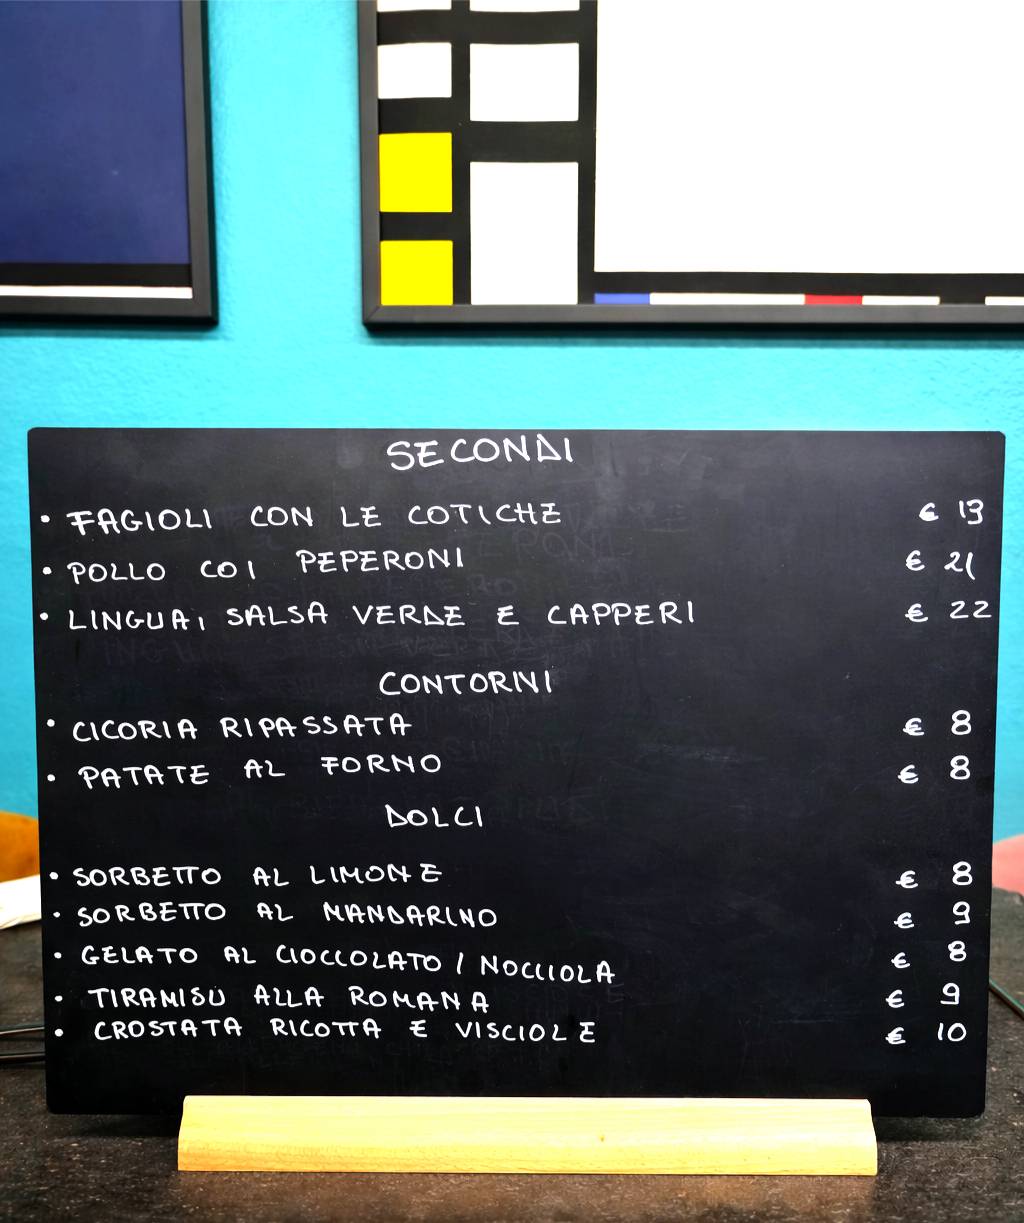 SECONDI
• FAGIOLI CON LE COTICHE € 13
• POLLO COI PEPERONI € 21
• LINGUA, SALSA VERDE E CAPPERI € 22
CONTORNI
• CICORIA RIPASSATA € 8
• PATATE AL FORNO € 8
DOLCI
• SORBETTO AL LIMONE € 8
• SORBETTO AL MANDARINO € 9
• GELATO AL CIOCCOLATO / NOCCIOLA € 8
• TIRAMISÙ ALLA ROMANA € 9
• CROSTATA RICOTTA E VISCIOLE € 10